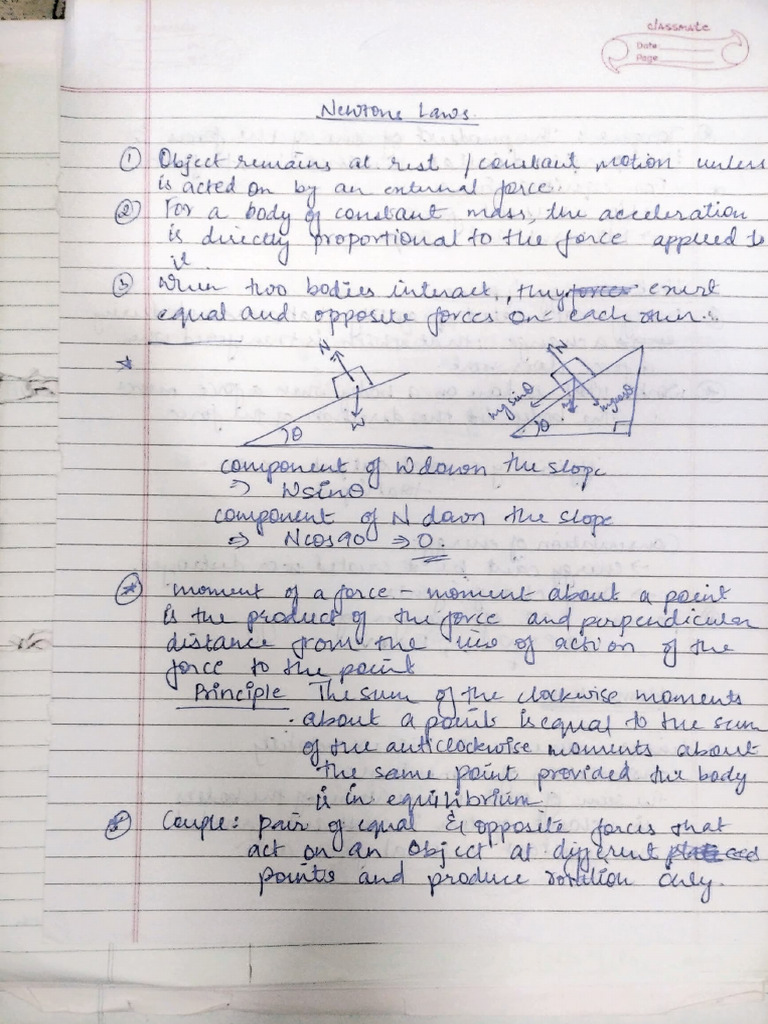 classmate
Date
Page
Newtons Laws.
① Object remains at rest / constant motion unless
is acted on by an external force
② For a body of constant mass, the acceleration
is directly proportional to the force applied to
it
③ When two bodies interact, they forces exert
equal and opposite forces on each other.
N
W
θ
N
mgsinθ
mgcosθ
θ
component of W down the slope
⇒ Wsinθ
component of N down the slope
⇒ Ncos90 ⇒ 0.
moment of a force – moment about a point
is the product of the force and perpendicular
distance from the line of action of the
force to the point
Principle The sum of the clockwise moments
about a point is equal to the sum
of the anticlockwise moments about
the same point provided the body
is in equilibrium
Couple: pair of equal & opposite forces that
act on an object at different
points and produce rotation only.